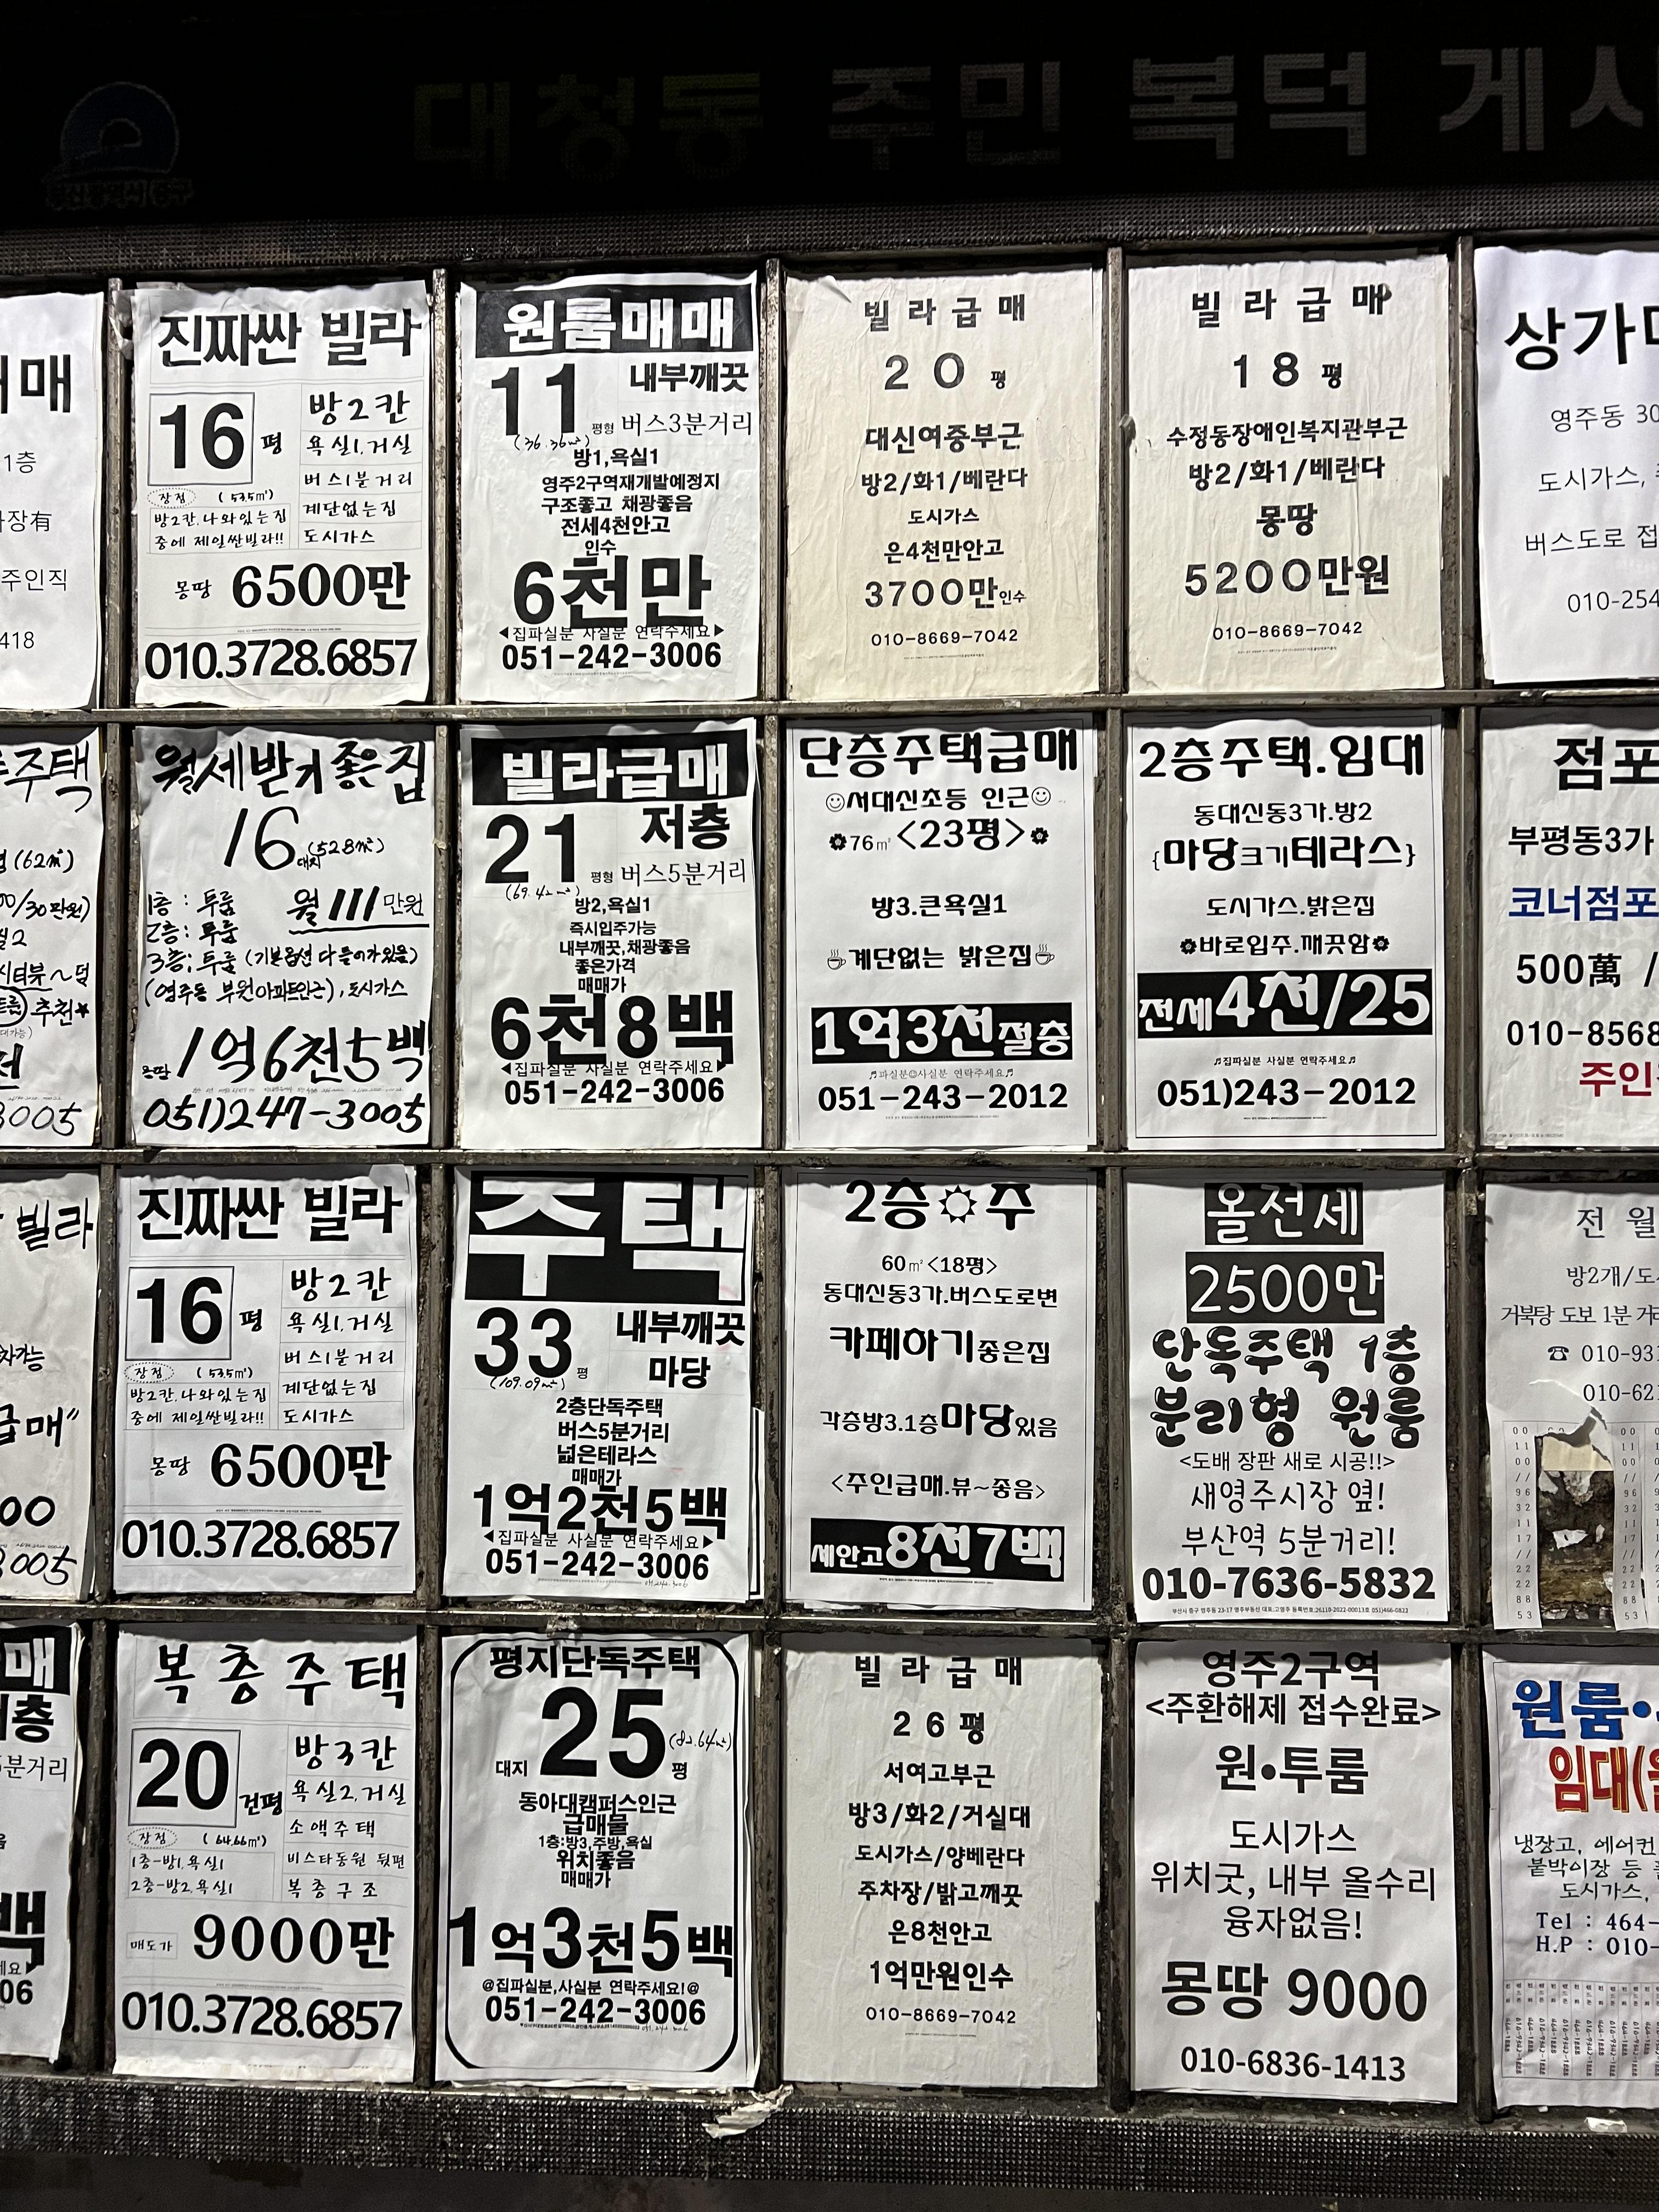 대청동 주민 복덕 게시
부산광역시 중구
매
1층
장有
주인직
418
진짜싼 빌라
16 평
방2칸
욕실1, 거실
버스1분거리
계단없는집
도시가스
장점 (53.5㎡)
방2칸, 나와있는집
중에 제일싼빌라!!
몽땅 6500만
010.3728.6857
원룸매매
11 평형
내부깨끗
버스3분거리
(36.36㎡)
방1,욕실1
영주2구역재개발예정지
구조좋고 채광좋음
전세4천안고
인수
6천만
◀집파실분 사실분 연락주세요▶
051-242-3006
빌라급매
20 평
대신여중부근
방2/화1/베란다
도시가스
은4천만안고
3700만인수
010-8669-7042
빌라급매
18 평
수정동장애인복지관부근
방2/화1/베란다
몽땅
5200만원
010-8669-7042
상가
영주동 30
도시가스,
버스도로 접
010-254
주택
(62㎡)
/30만원)
2
추천★
3005
월세받기좋은집
16 대지 (52.8㎡)
1층 : 투룸
월 111만원
2층 : 투룸
3층 : 투룸 (기본옵션 다 들어가있음)
(영주동 부원아파트인근), 도시가스
몽땅 1억6천5백
051)247-3005
빌라급매
21 평형
저층
버스5분거리
(69.42㎡)
방2,욕실1
즉시입주가능
내부깨끗,채광좋음
좋은가격
매매가
6천8백
◀집파실분 사실분 연락주세요▶
051-242-3006
단층주택급매
☺서대신초등 인근☺
76㎡<23평>
방3.큰욕실1
☕계단없는 밝은집☕
1억3천절충
♬파실분☺사실분 연락주세요♬
051-243-2012
2층주택.임대
동대신동3가.방2
{마당크기테라스}
도시가스.밝은집
바로입주.깨끗함
전세4천/25
♬집파실분 사실분 연락주세요♬
051)243-2012
점포
부평동3가
코너점포
500萬 /
010-8568
주인
빌라
급매"
00
3005
진짜싼 빌라
16 평
방2칸
욕실1, 거실
버스1분거리
계단없는집
도시가스
장점 (53.5㎡)
방2칸, 나와있는집
중에 제일싼빌라!!
몽땅 6500만
010.3728.6857
주택
33 평
내부깨끗
마당
(109.09㎡)
2층단독주택
버스5분거리
넓은테라스
매매가
1억2천5백
◀집파실분 사실분 연락주세요▶
051-242-3006
2층☼주
60㎡<18평>
동대신동3가.버스도로변
카페하기좋은집
각층방3.1층마당있음
<주인급매.뷰~좋음>
세안고8천7백
올전세
2500만
단독주택 1층
분리형 원룸
<도배 장판 새로 시공!!>
새영주시장 옆!
부산역 5분거리!
010-7636-5832
부산시 중구 영주동 23-17 영주부동산 대표:고영주 등록번호:26110-2022-00013호 051)466-0822
전 월
방2개/도
거북탕 도보 1분 거
☎ 010-931
010-621
매
층
분거리
백
06
복층주택
20 건평
방3칸
욕실2, 거실
소액주택
비스타동원 뒷편
복층구조
장점 (64.66㎡)
1층-방1, 욕실1
2층-방2, 욕실1
매도가 9000만
010.3728.6857
평지단독주택
대지 25 평
(82.64㎡)
동아대캠퍼스인근
급매물
1층:방3,주방,욕실
위치좋음
매매가
1억3천5백
@집파실분,사실분 연락주세요!@
051-242-3006
빌라급매
26 평
서여고부근
방3/화2/거실대
도시가스/양베란다
주차장/밝고깨끗
은8천안고
1억만원인수
010-8669-7042
영주2구역
<주환해제 접수완료>
원•투룸
도시가스
위치굿, 내부 올수리
융자없음!
몽땅 9000
010-6836-1413
원룸•
임대(
냉장고, 에어컨
붙박이장 등
도시가스,
Tel : 464-
H.P : 010-